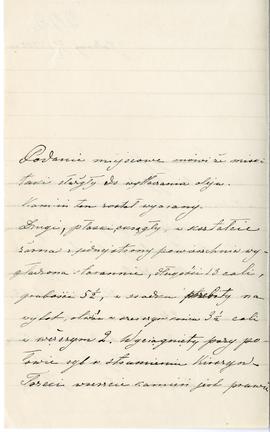 Podanie miejscowe mówi że mise
taki służyły do wytłaczania oleju.
Kamień ten został wyorany.
Drugi, płasko okrągły, w kształcie
żarna z jednej strony powierzchnia wy-
gładzona starannie, długości 13 cali,
grubości 5½, w środku na
wylot, otwór w szerszym końcu 3½ cali
i węższym 2. Wyciągnięty przy po-
łowie ryb w strumieniu
Trzeci wreszcie kamień jest prawie